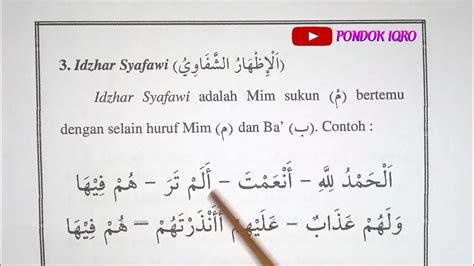 PONDOK IQRO
3. Idzhar Syafawi (اَلْإِظْهَارُ الشَّفَاوِيُ)
Idzhar Syafawi adalah Mim sukun (مْ) bertemu
dengan selain huruf Mim (م) dan Ba’ (ب). Contoh :
اَلْحَمْدُ لِلَّهِ – أَنْعَمْتَ – أَلَمْ تَرَ – هُمْ فِيْهَا
وَلَهُمْ عَذَابٌ – عَلَيْهِمْ أَأَنْذَرْتَهُمْ – هُمْ فِيْهَا